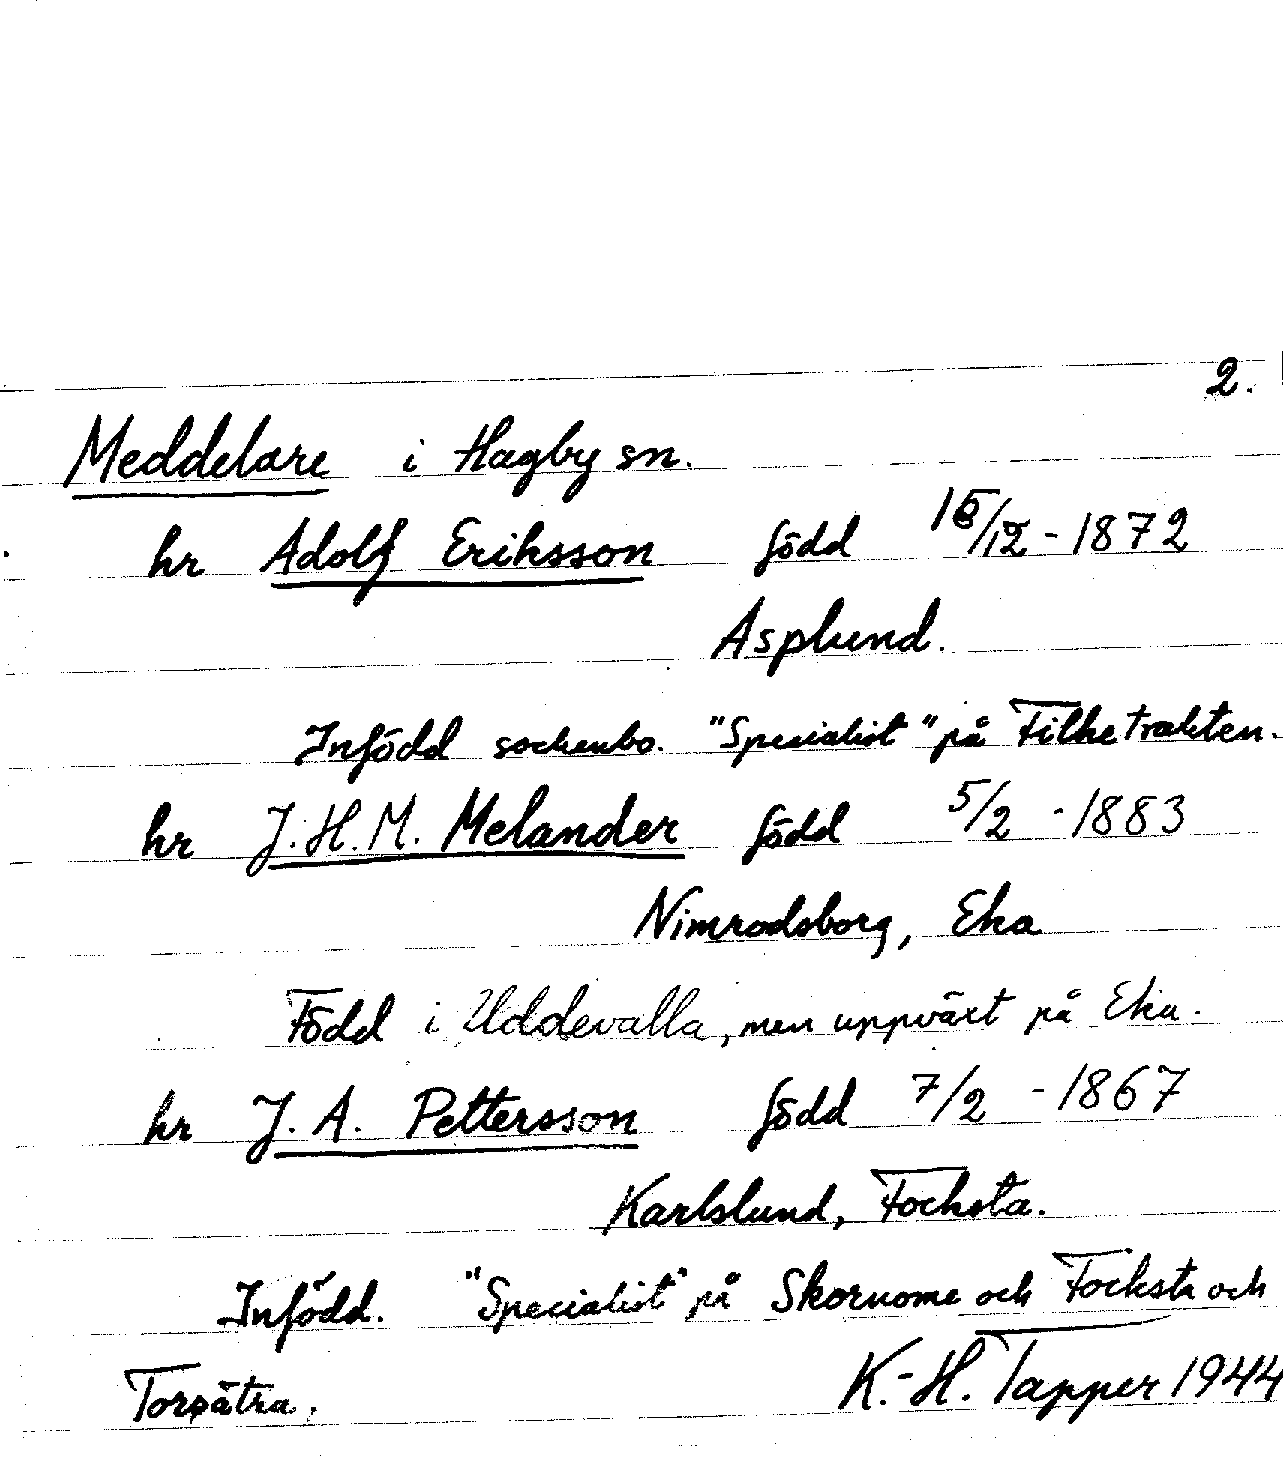 2.
Meddelare i Hagby sn.
hr Adolf Eriksson född 16/12 - 1872
Asplund.
Infödd sockenbo. "Specialist" på Filketrakten.
hr J.H.M. Melander född 5/2 - 1883
Nimrodsborg, Eka
Född i Uddevalla, men uppväxt på Eka.
hr J. A. Pettersson född 7/2 - 1867
Karlslund, Focksta.
Infödd. "Specialist" på Skorvome och Focksta och
Torsätra. K.-H. Tapper 1944